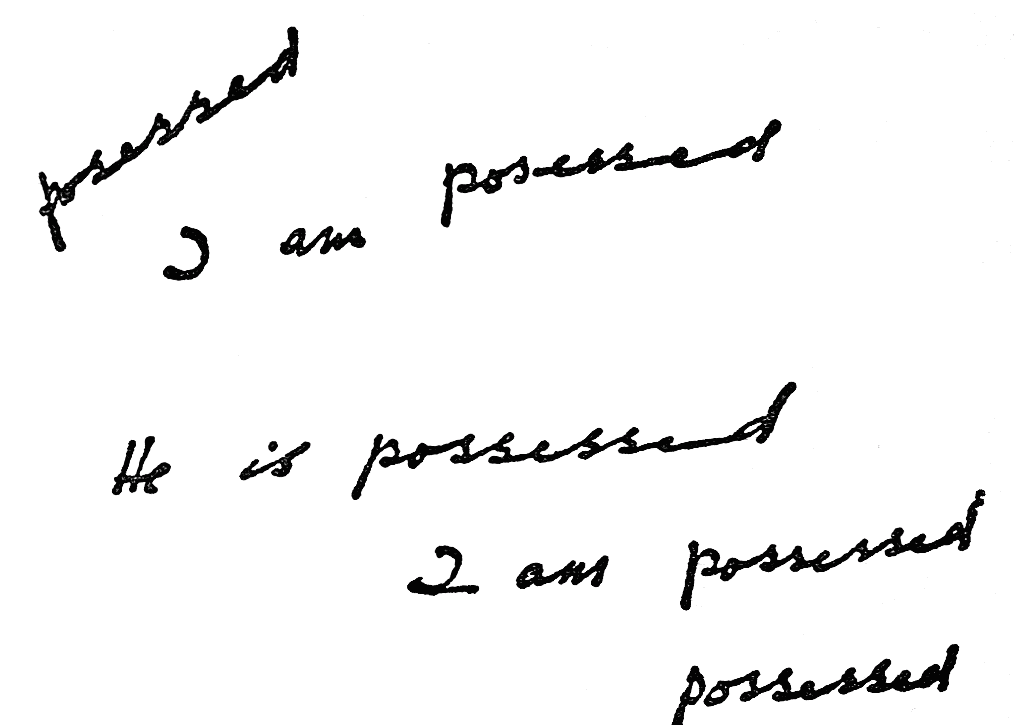 posessed
I am posessed
He is possessed
I am possessed
possessed